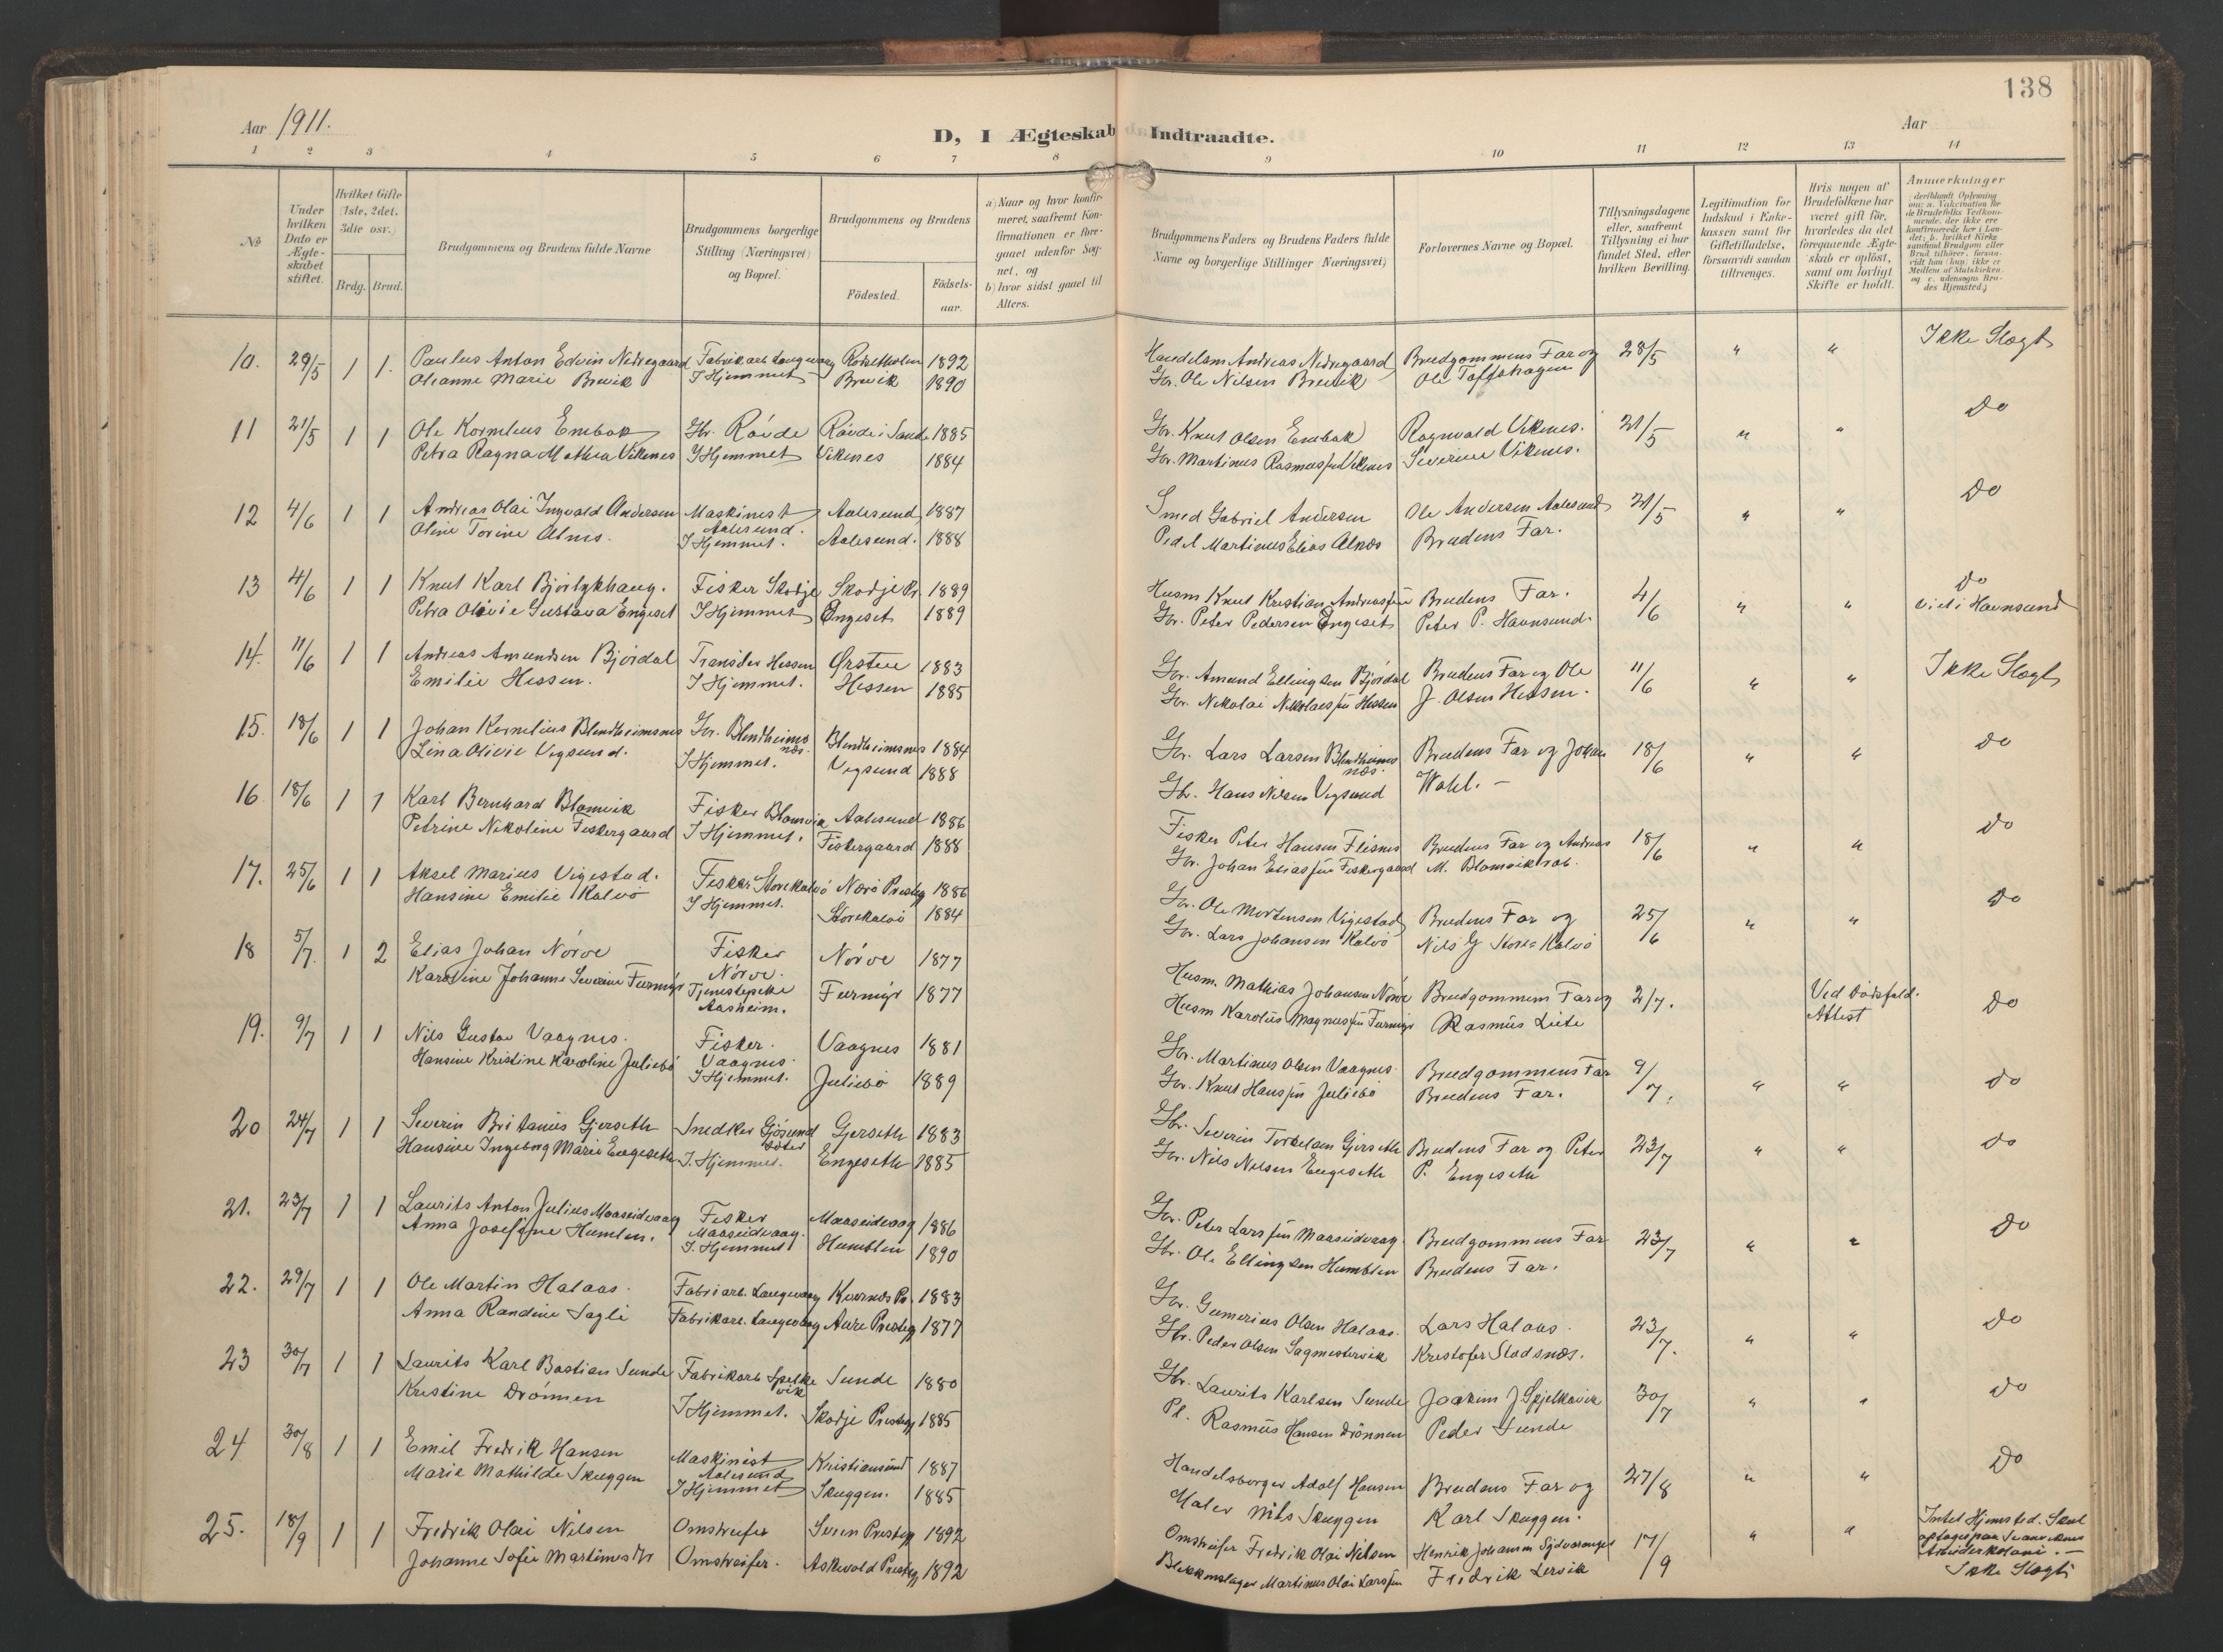 138
Aar 1911.
D, I Ægteskab Indtraadte.
Aar
1 2 3 4 5 6 7 8 9 10 11 12 13 14
No
Under hvilken Dato er Ægteskabet stiftet.
Hvilket Gifte (1ste, 2det, 3die osv.)
Brdg. Brud.
Brudgommens og Brudens fulde Navne
Brudgommens borgerlige Stilling (Næringsvei) og Bopæl.
Brudgommens og Brudens
Födested.
Födselsaar.
a) Naar og hvor konfirmeret, saafremt Konfirmationen er foregaaet udenfor Sognet, og
b) hvor sidst gaaet til Alters.
Brudgommens Faders og Brudens Faders fulde Navne og borgerlige Stillinger (Næringsvei)
Forlovernes Navne og Bopæl.
Tillysningsdagene eller, saafremt Tillysning ei har fundet Sted, efter hvilken Bevilling.
Legitimation for Indskud i Enkekassen samt for Giftetilladelse, forsaavidt saadan tiltrænges.
Hvis nogen af Brudefolkene har været gift för, hvorledes da det foregaaende Ægteskab er oplöst, samt om lovligt Skifte er holdt.
Anmerkninger
10. 29/5 1 1. Paulus Anton Edvin Nedregaard Fabrikarb Langevaag 1892 Handelsm Andreas Nedregaard Brudgommens Far og 28/5 " " Ikke Slægt
Olianne Marie Brevik I Hjemmet Brevik 1890 Gbr. Ole Nilsen Brevik Ole
11 21/5 1 1 Ole Kornelius Embak Gbr. Røvde Røvde i Sande 1885 Gbr. Knut Olsen Embak Ragnvald Vikenes. 21/5 " " Do
Petra Ragna Mathea Vikenes I Hjemmet Vikenes 1884 Gbr. Martinus Rasmussen Vikenes Severine Vikenes.
12 4/6 1 1 Andreas Olai Ingvald Andersen Maskinist Aalesund. Aalesund 1887 Smed Gabriel Andersen Ole Andersen Aalesund 21/5 " " Do
Oline Torine Alnes. I Hjemmet. Aalesund. 1888 Pedel Martinus Elias Alnæs Brudens Far.
13 4/6 1 1 Knut Karl Bjørlykhaug. Fisker Skodje Skodje Pr 1889 Husm Knut Kristian Andreassen Brudens Far. 4/6 " " Do
Petra Olivie Gustava Engeset I Hjemmet Engeset 1889 Gbr. Peter Pedersen Engeset Peter P. Havnsund. Viet i Havnsund
14. 11/6 1 1 Andreas Amundsen Bjørdal Hessen Ørsten 1883 Gbr. Amund Ellingsen Bjørdal Brudens Far og Ole 11/6 " " Ikke Slægt
Emilie Hessen. I Hjemmet. Hessen 1885 Gbr. Nikolai Nikolaisen Hessen J. Olsen Hessen.
15. 18/6 1 1 Johan Kornelius Blendheimsnes Gbr. Blendheimsnæs. Blendheimsnes 1884 Gbr. Lars Larsen Blendheimsnæs. Brudens Far og Johan 18/6 " " Do
Lina Olivie Vegsund. I Hjemmet. Vegsund 1888 Gbr. Hans Nilsen Vegsund Wahl. –
16 18/6 1 1 Karl Bernhard Blomvik Fisker Blomvik Aalesund 1886 Fisker Peter Hansen Flisnes Brudens Far og Andreas 18/6 " " Do
Petrine Nikoline Fiskergaard I Hjemmet. Fiskergaard 1888 Gbr. Johan Eliassen Fiskergaard M. Blomvik
17. 25/6 1 1 Aksel Marius Vigestad. Fisker Storekalvø Nærø Prestg 1886 Gbr. Ole Mortensen Vigestad Brudens Far og 25/6 " " Do
Hansine Emilie Kalvø I Hjemmet. Storekalvø 1884 Gbr. Lars Johansen Kalvø Nils G Store Kalvø
18 5/7. 1 2 Elias Johan Nørve Fisker Nørve. Nørve 1877 Husm. Mathias Johansen Nørve Brudgommens Far og 2/7. Ved Dødsfald. Attest Do
Karoline Johanne Severine Furmyr Tjenestepike Aasheim. Furmyr 1877 Husm Karolus Magnussen Furmyr Rasmus
19. 9/7 1 1 Nils Gustav Vaagnes. Fisker. Vaagnes. Vaagnes 1881 Gbr. Martinus Olsen Vaagnes. Brudgommens Far 9/7. " " Do
Hansine Kristine Karoline Juliebø I Hjemmet. Juliebø 1889 Gbr. Knut Hanssen Juliebø Brudens Far.
20 24/7 1 1 Severin Britanius Gjerseth Snedker Gjøsund Gjerseth 1883 Gbr. Severin Torkelsen Gjerseth Brudens Far og Peter 23/7 " " Do
Hansine Ingeborg Marie Engeseth I. Hjemmet. Engeseth 1885 Gbr. Nils Nilsen Engeseth P. Engeseth
21. 23/7 1 1 Laurits Anton Julius Maaseidvaag Fisker Maaseidvaag. Maaseidvaag 1886 Gbr. Peter Larssen Maaseidvaag. Brudgommens Far 23/7 " " Do
Anna Josefine Humlen. I. Hjemmet Humblen 1890 Gbr. Ole Ellingsen Humblen Brudens Far.
22. 29/7 1 1 Ole Martin Halaas. Fabrikarb. Langevaag Kvernes Pr. 1883 Gbr. Gumerius Olsen Halaas. Lars Halaas. 23/7. " " Do
Anna Randine Sagli Fabrikarb. Langevaag Aure Prestg 1877 Gbr. Peder Olsen Sagmestervik Kristofer Stadsnæs.
23 30/7 1 1 Laurits Karl Bastian Sunde Fabrikarb Spelkevik Sunde 1880 Gbr. Laurits Karlsen Sunde Joakim J. Spjelkavik 30/7 " " Do
Kristine Drønnen I Hjemmet. Skodje Prestegj 1885 Pl. Rasmus Hansen Drønnen Peder Sunde
24 30/8 1 1 Emil Fredrik Hansen Maskinist Aalesund Kristiansund 1887 Handelsborger Adolf Hansen Brudens Far og 27/8 " " Do
Marie Mathilde Skuggen I Hjemmet Skuggen. 1885 Maler Nils Skuggen Karl Skuggen.
25. 18/9 1 1 Fredrik Olai Nilsen Omstreifer Prestegj 1892 Omstreifer Fredrik Olai Nilsen Henrik Johansen Sydvaranger 17/9 " " Intet Hjemsted. Skal optages paa Arbeiderkoloni. –
Johanne Sofie Martinusdtr Omstreifer. Askevold Prestegj 1892 Blikkenslager Martinus Olai Larssen Fredrik Lervik Ikke Slægt